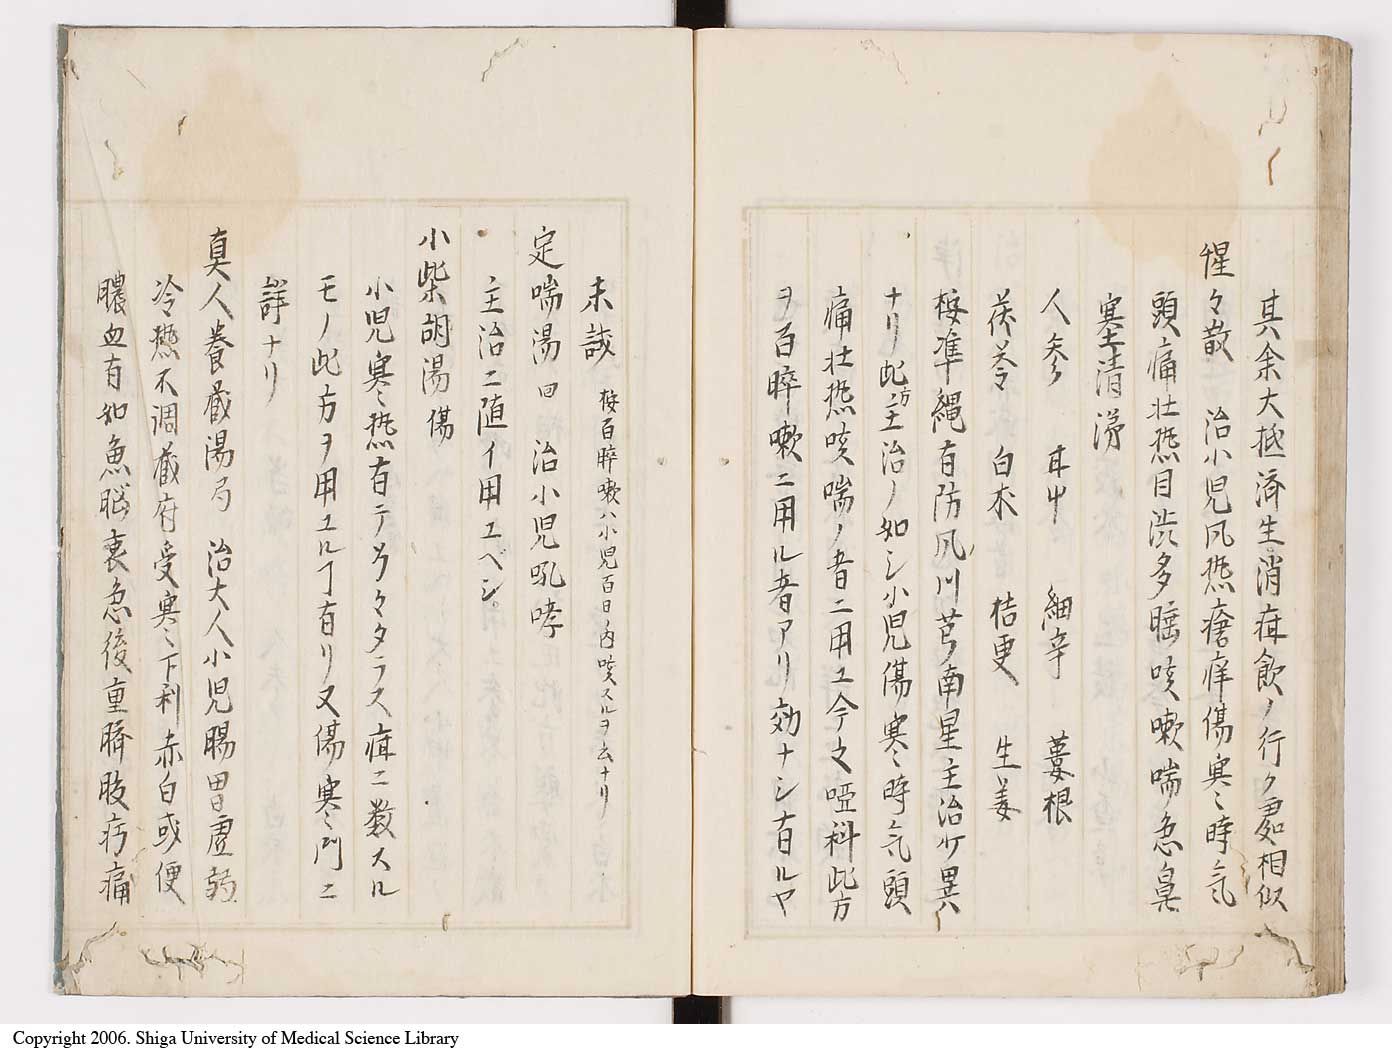 其余大抵済生消疳飲ノ行ク処相似
惺々散 治小児風熱瘡痒傷寒時気
頭痛壮熱目渋多睡咳嗽喘急鼻
塞清涕
人参 甘中 細辛 蔞根
茯苓 白朮 桔更 生姜
桉準繩有防風川芎南星主治少異
ナリ此方主治ノ如シ小児傷寒時気頭
痛壮熱咳喘ノ者ニ用ユ今之唖科此方
ヲ百晬嗽ニ用ル者アリ効ナシ有ルヤ
未試 桉百晬嗽ハ小児百日ノ内咳スルヲ云ナリ
定喘湯回 治小児吼哮
主治ニ随イ用ユベシ。
小柴胡湯傷
小児寒熱有テ多クタラス疳ニ数スル
モノ此方ヲ用ユル丁有リ又傷寒門ニ
詳ナリ
真人養蔵湯局 治大人小児腸胃虚弱
冷熱不調蔵府受寒下利赤白或便
膿血有如魚脳裏急後重臍腹疞痛
Copyright 2006. Shiga University of Medical Science Library